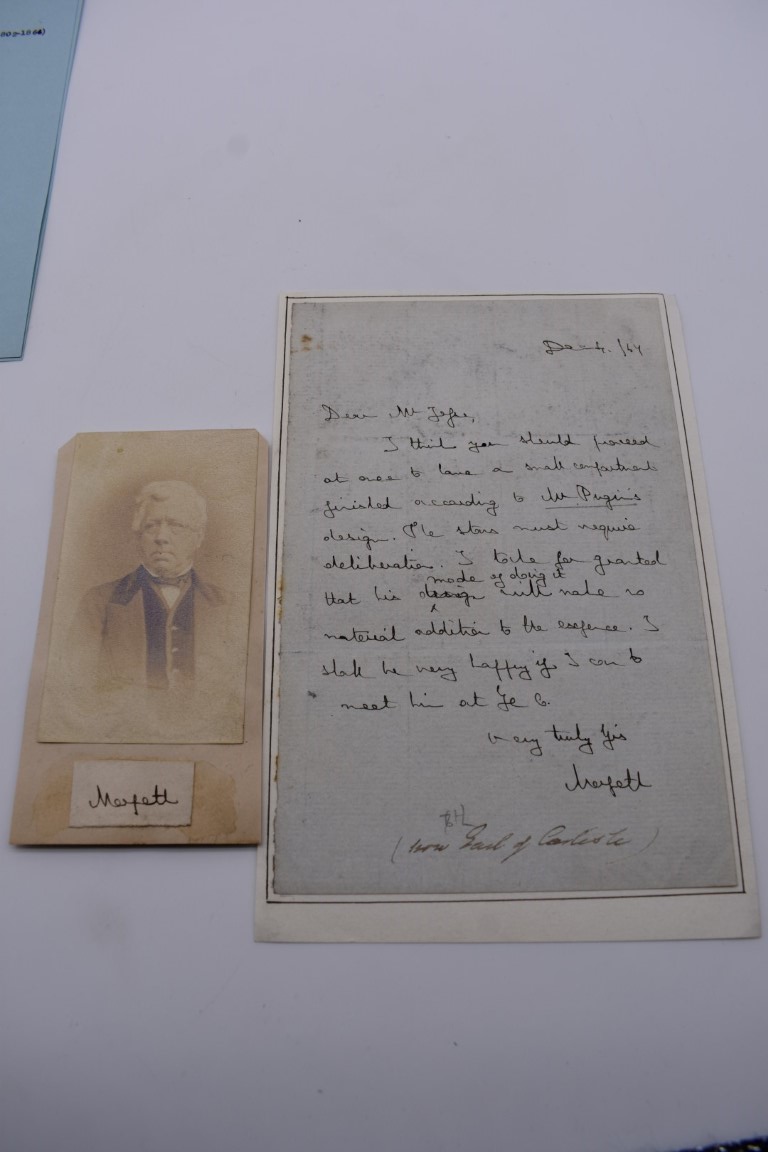 802-1864)
Dear Mr Jesse,
I think you should proceed
at once to have a small compartment
finished according to Mr. Pugin's
design. The stars must require
deliberation. I take for granted
mode of doing it
that his design will make no
material addition to the expence. I
shall be very happy if I can to
meet him at
very truly yrs
Morpeth
(now Earl of Carlisle)
Morpeth